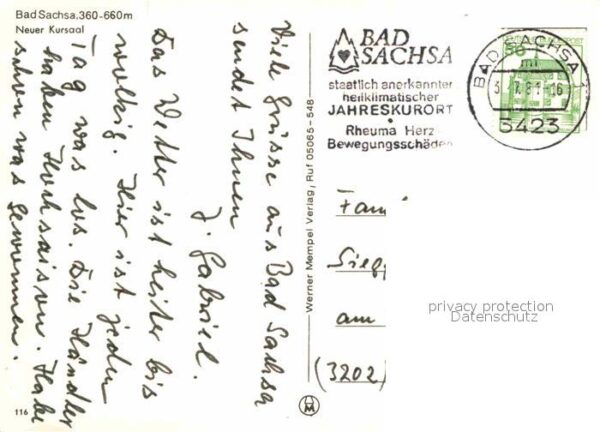 Bad Sachsa. 360-660m
Neuer Kursaal
Viele Grüsse aus Bad Sachsa
sendet Ihnen
J. Gabriel.
Das Wetter ist heiter bis
wolkig. Hier ist jeden
Tag was los. Die Händler
haben Hochsaison. Habe
schon was gewonnen.
116
Werner Mempel Verlag, Ruf 05065-548
BAD
SACHSA
staatlich anerkannter
heilklimatischer
JAHRESKURORT
Rheuma Herz
Bewegungsschäden
BAD SACHSA
5423
50
Fam
am
(3202)
privacy protection
Datenschutz